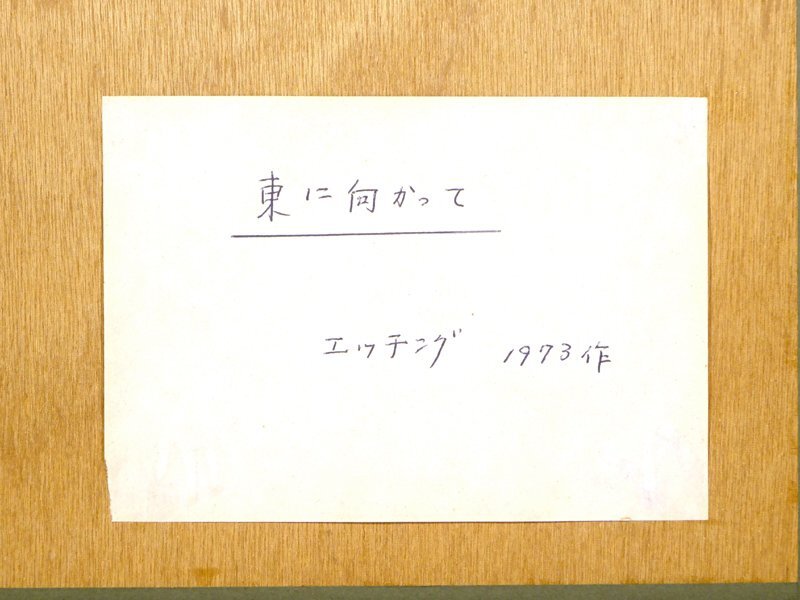 東に向かって
エッチング 1973作